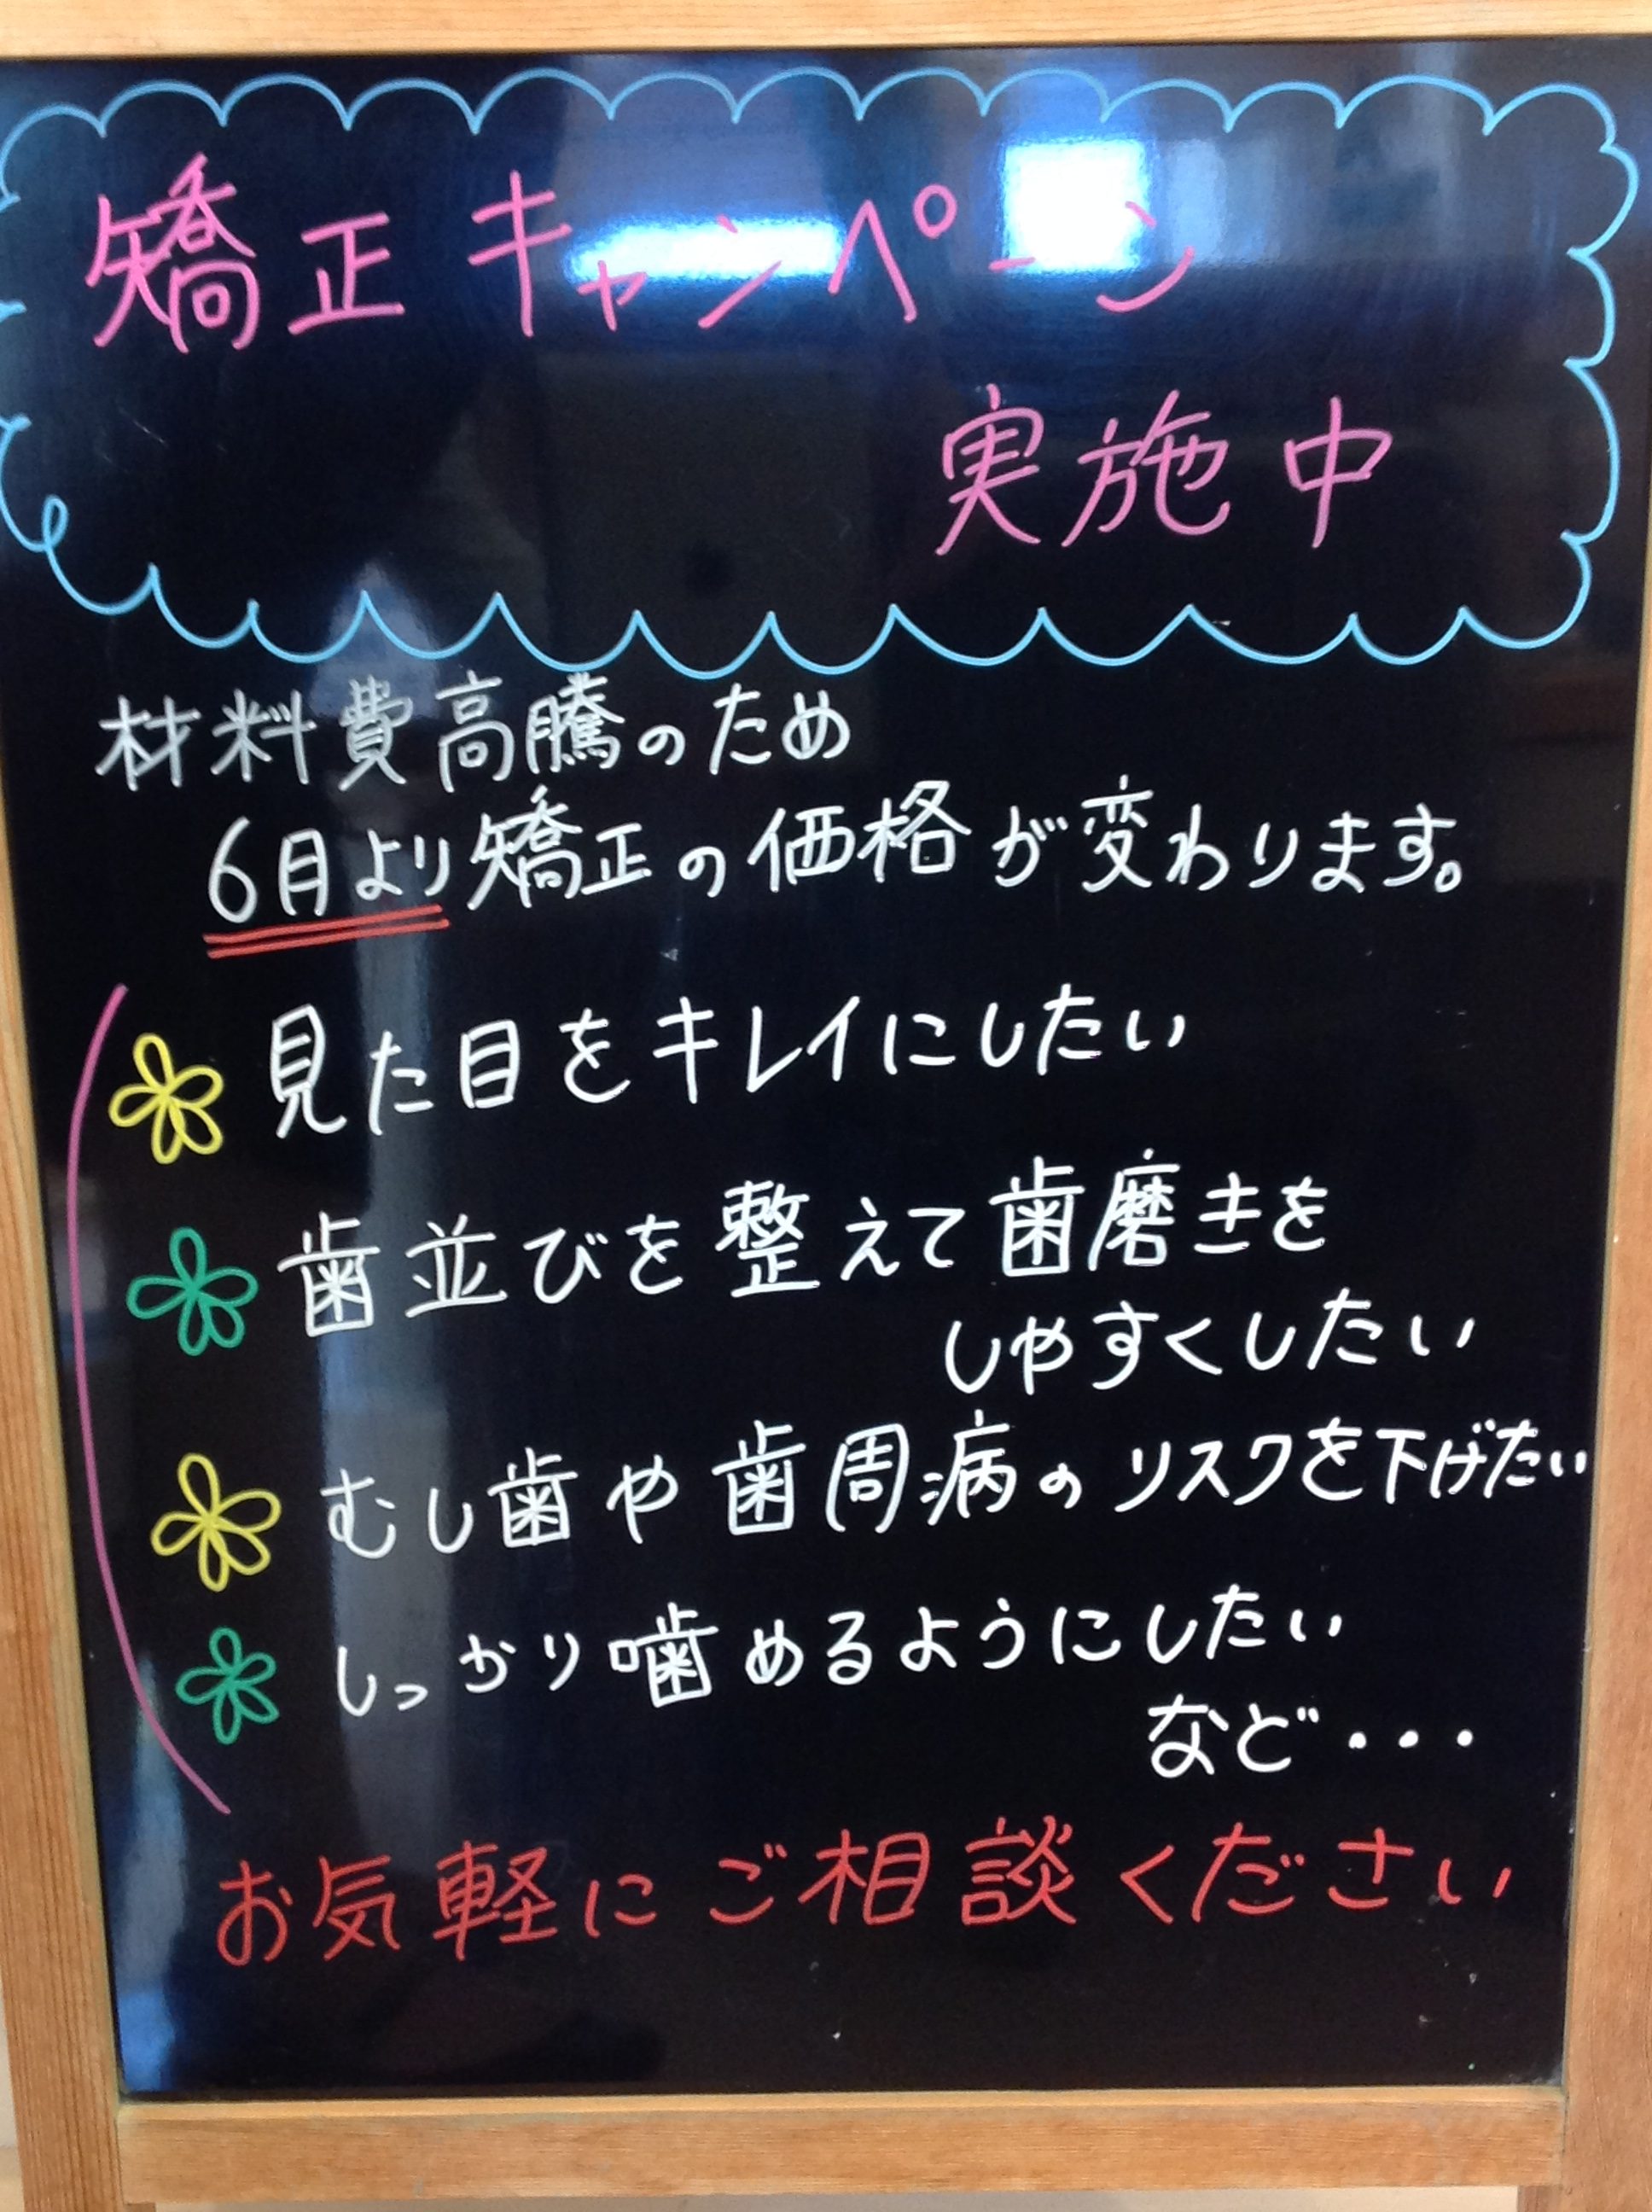 矯正キャンペーン
実施中
材料費高騰のため
6月より矯正の価格が変わります。
見た目をキレイにしたい
歯並びを整えて歯磨きを
しやすくしたい
むし歯や歯周病のリスクを下げたい
しっかり噛めるようにしたい
など・・・
お気軽にご相談ください